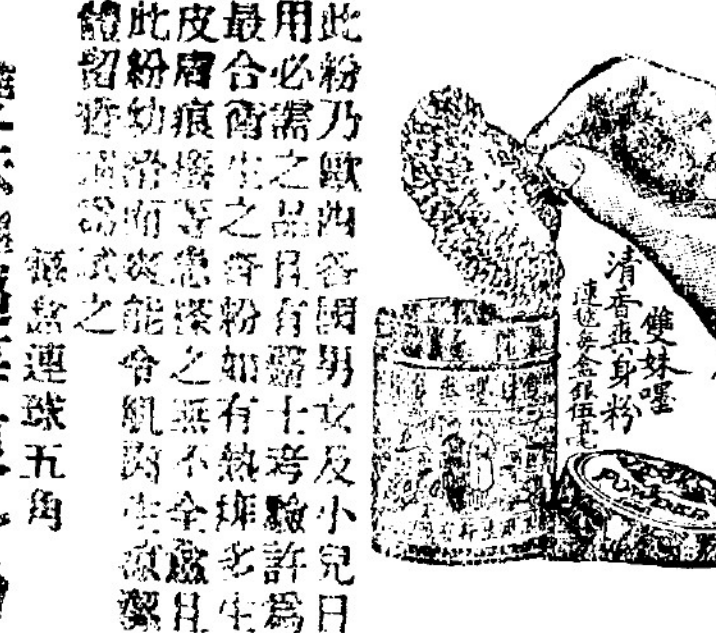 雙妹嚜
清香爽身粉
連毬每盒銀伍毫
此粉乃歐西各國男女及小兒日
用必需之品且有醫士考驗許為
最合衛生之香粉如有熱痱多生
皮膚痕癢等患搽之無不全愈且
此粉幼滑而爽能令肌肉生涼潔
體留香頭試之
每盒連毬五角